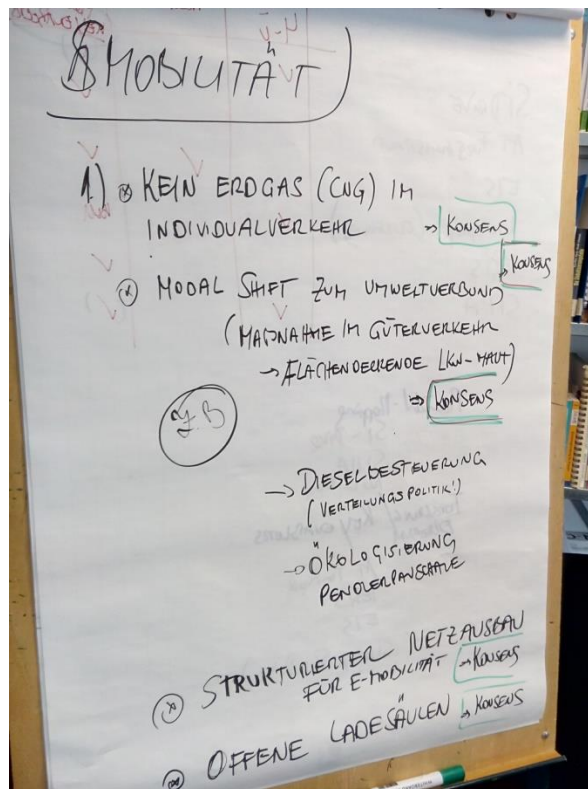 MOBILITÄT
1) ⊗ KEIN ERDGAS (CNG) IM
INDIVIDUALVERKEHR → KONSENS
⊗ MODAL SHIFT ZUM UMWELTVERBUND → KONSENS
(MAßNAHME IM GÜTERVERKEHR
→ FLÄCHENDECKENDE LKW-MAUT)
⇒ KONSENS
Z.B
→ DIESELBESTEUERUNG
(VERTEILUNGSPOLITIK!)
→ ÖKOLOGISIERUNG
PENDLERPAUSCHALE
⊗ STRUKTURIERTER NETZAUSBAU
FÜR E-MOBILITÄT → KONSENS
⊗ OFFENE LADESÄULEN → KONSENS